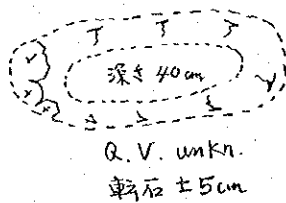 深さ 40cm
Q.V. unkn.
転石 ±5cm